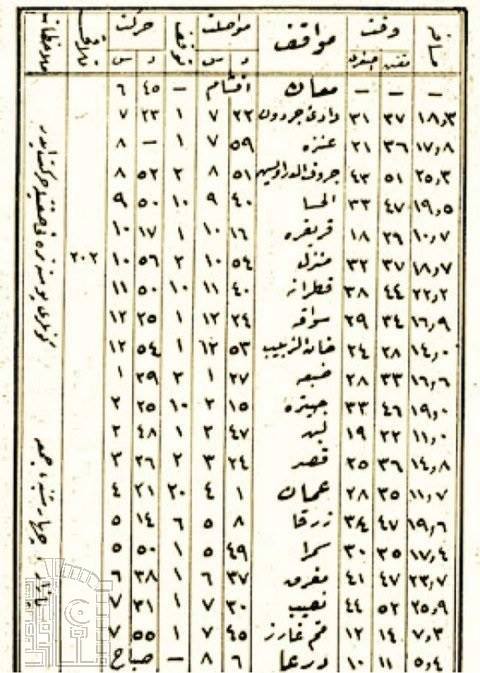 مسافه وقت مواقف مواصلت توقف حركت ملاحظات
مقنن اصغری د س د س
— — — معان اقشام — ٤٥ ٦
١٨٫٣ ٣٧ ٣١ وادئ جردون ٢٢ ٧ ١ ٢٣ ٧
١٧٫٨ ٣٦ ٢١ عنزه ٥٩ ٧ ١ — ٨
٢٥٫٣ ٥١ ٤٣ جروف الدراويش ٥١ ٨ ٢ ٥٢ ٨
١٩٫٥ ٤٧ ٣٣ الحسا ٤٠ ٩ ١٠ ٥٠ ٩
١٠٫٧ ٢٩ ١٨ فريفره ١٦ ١٠ ١ ١٧ ١٠
١٨٫٧ ٣٧ ٣٢ منزل ٥٤ ١٠ ٢ ٥٦ ١٠ ٢٠٢
٢٢٫٢ ٤٤ ٣٨ قطرانه ٤٠ ١١ ١٠ ٥٠ ١١
١٦٫٩ ٣٤ ٢٩ سواقه ٢٤ ١٢ ١ ٢٥ ١٢
١٤٫٠ ٢٨ ٢٤ خان الزبيب ٥٣ ١٢ ١ ٥٤ ١٢
١٦٫٦ ٣٣ ٢٨ ضبعه ٢٧ ١ ٢ ٢٩ ١
١٩٫٠ ٤٦ ٣٣ جيزه ١٥ ٢ ١٠ ٢٥ ٢
١١٫٠ ٢٢ ١٩ لبن ٤٧ ٢ ١ ٤٨ ٢
١٤٫٨ ٣٦ ٢٥ قصر ٢٤ ٣ ٢ ٢٦ ٣
١١٫٧ ٣٥ ٢٨ عمان ١ ٤ ٢٠ ٢١ ٤
١٩٫٦ ٤٧ ٣٤ زرقا ٨ ٥ ٦ ١٤ ٥
١٧٫٤ ٣٥ ٣٠ سمرا ٤٩ ٥ ١ ٥٠ ٥
٢٣٫٧ ٤٧ ٤١ مفرق ٣٧ ٦ ١ ٣٨ ٦
٢٥٫٩ ٥٢ ٤٤ نصيب ٣٠ ٧ ١ ٣١ ٧
٧٫٣ ١٤ ١٢ غارز ٤٥ ٧ ١ ٥٥ ٧
٥٫٤ ١١ ١٠ درعا ٦ ٨ — صباح